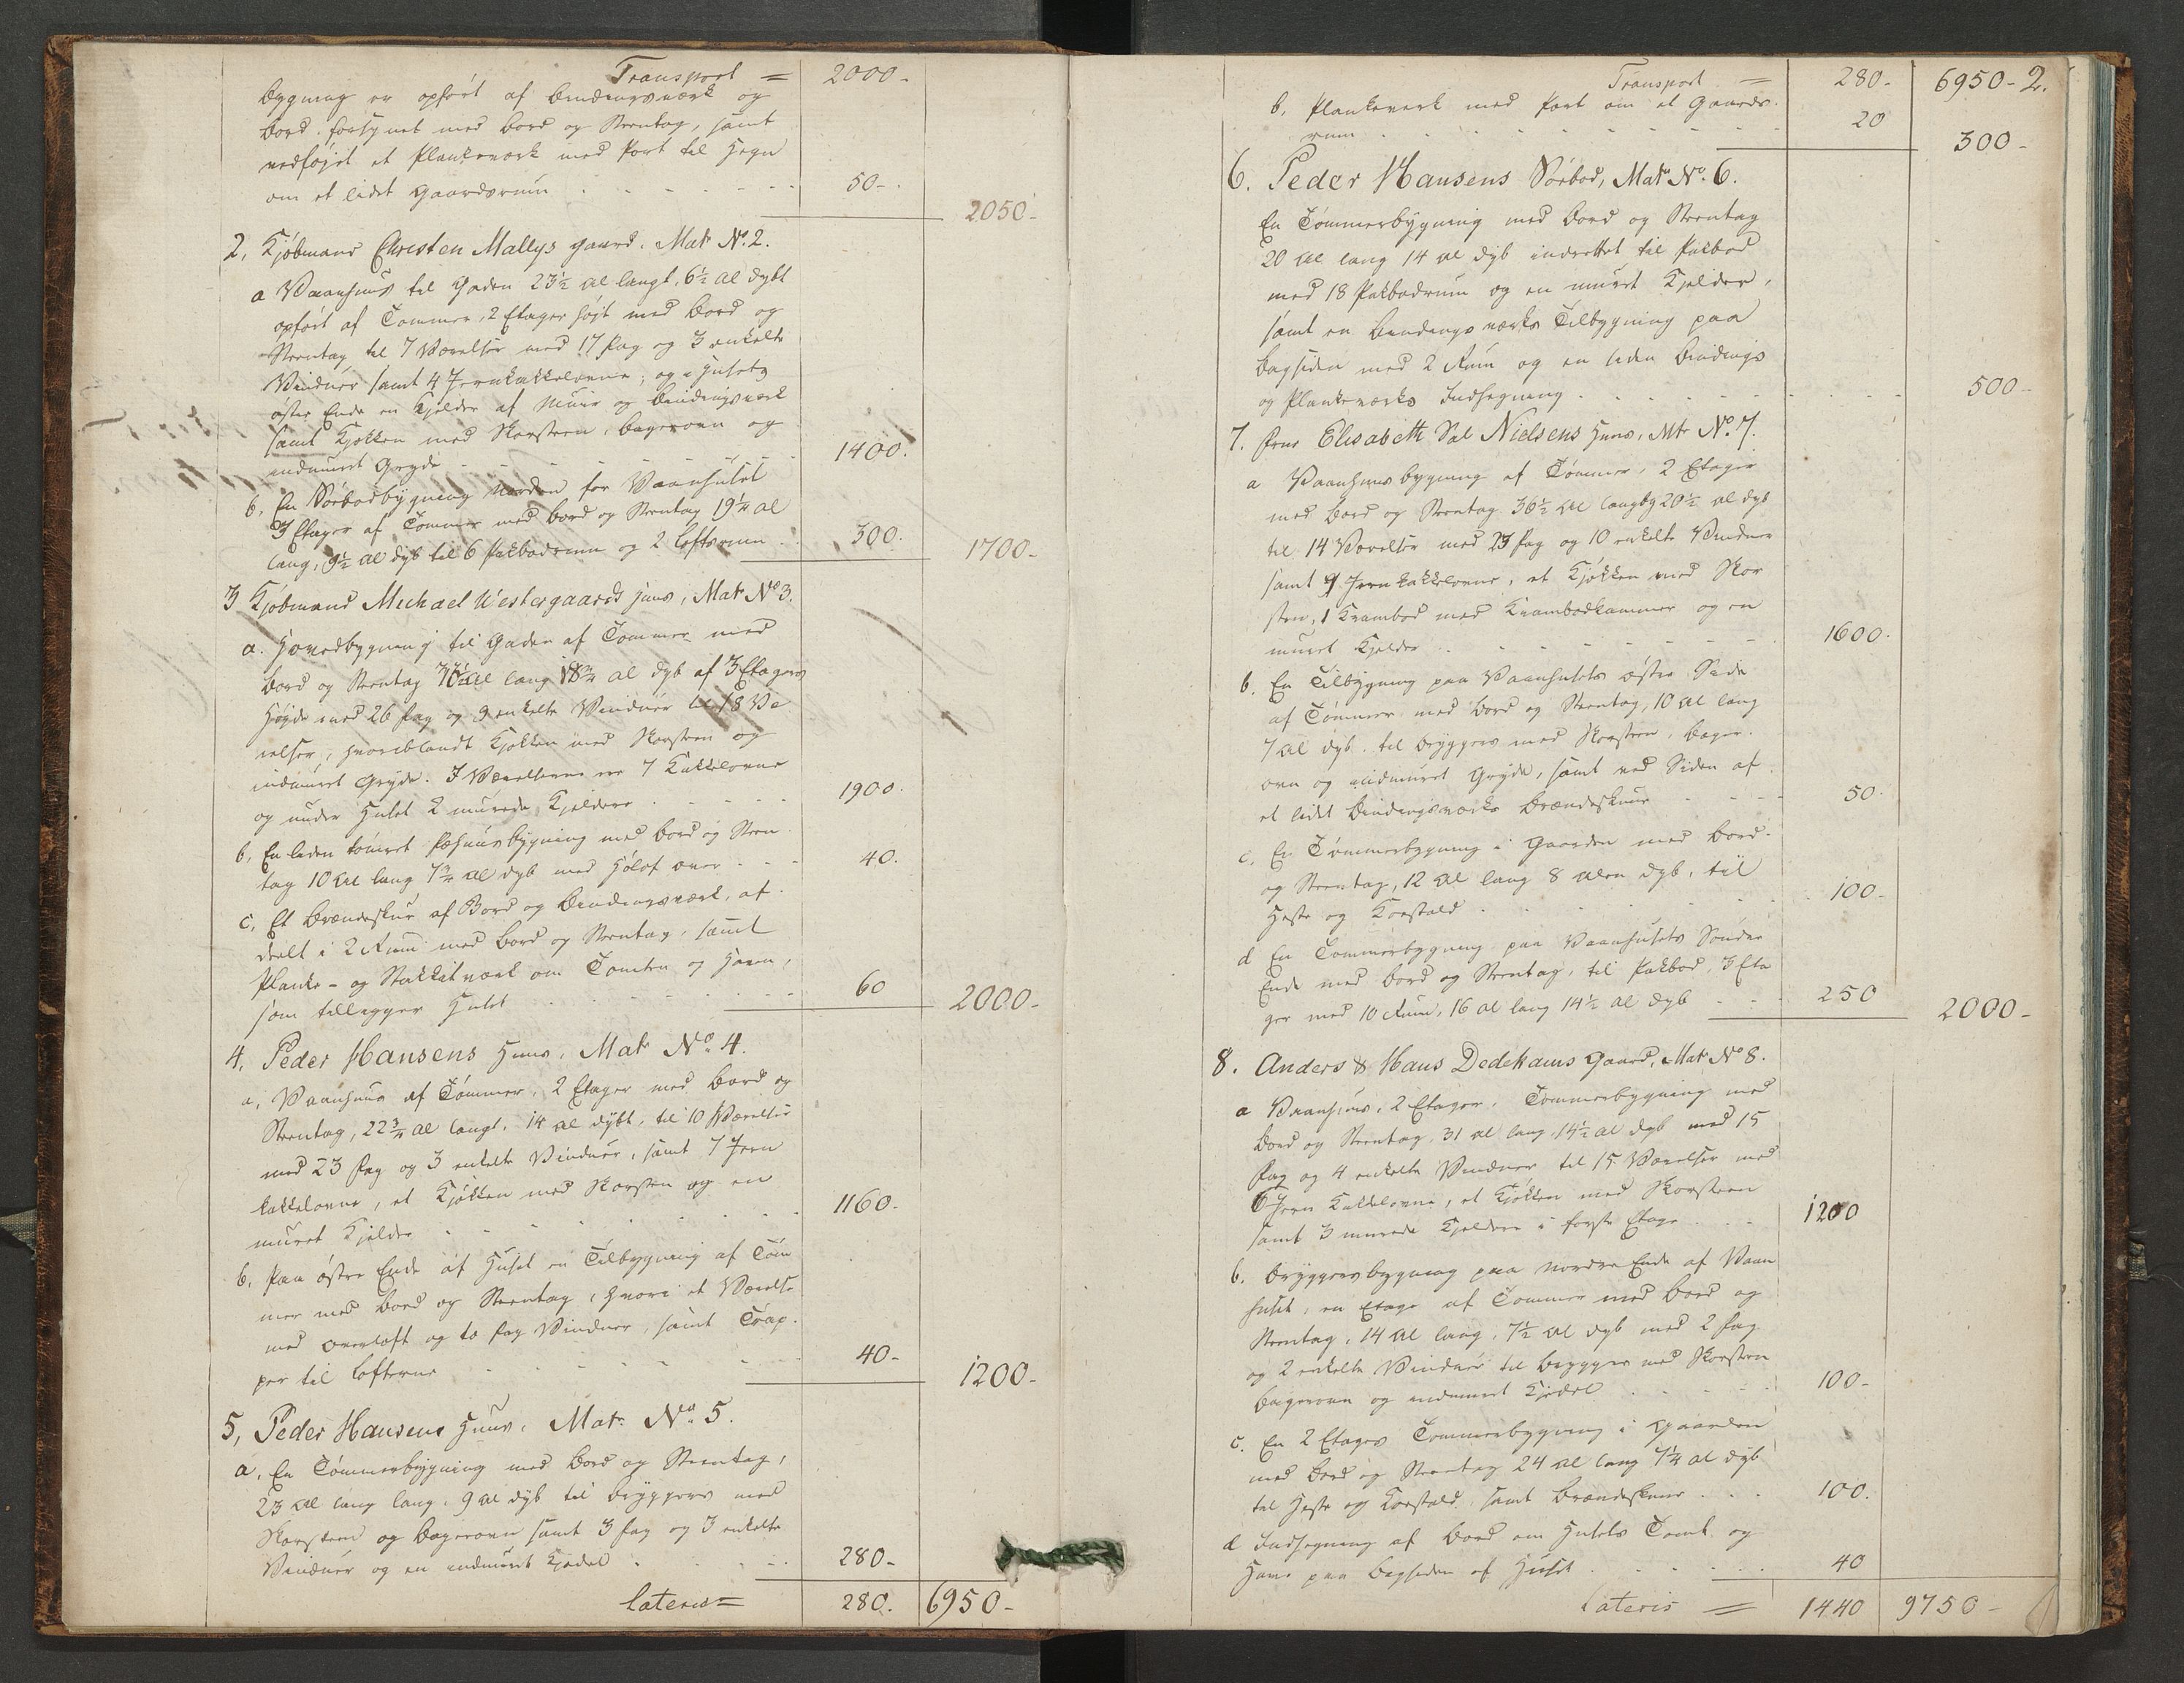 Transport = 2000-
bygning er opført af bindingsværk og
bord forsynet med bord og Steentag, samt
vedføjet et Plankeværk med Port til Hegn
om et lidet Gaardsrum 50-
2050-
2, Kjøbmand Christen Mallys gaard, Matr No. 2.
a Vaanhuus til Gaden 23½ al langt, 6½ al dybt
opført af Tømmer, 2 Etager høit med bord og
Steentag til 7 Værelser med 17 fag og 3 enkelte
Vinduer samt 4 Jernkakkelovne, og i husets
østre Ende en Kjelder af Muur og bindingsværk
samt Kjøkken med Skorsteen, bagerovn og
indmuret Gryde 1400.
b, En Søebodbygning Norden for Vaanhuset
3 Etager af Tømmer med bord og Steentag 19¼ al
lang, 9½ al dyb til 6 Pakbodrum og 2 loftsrum 300.
1700-
3 Kjøbmand Michael Westergaards huus, Matr No 3.
a. Hovedbygning til Gaden af Tømmer med
bord og Steentag al lang 18¾ al dyb af 3 Etagers
Høyde med 26 fag og 9 enkelte Vinduer til 18 Væ
relser, hvoriblandt Kjøkken med Skorsteen og
indmuret Gryde. I Værelserne ere 7 Kakkelovne
og under Huset 2 murede Kjeldere 1900.
b, En liden tømret fæhuusbygning med bord og Steen
tag 10 al lang 7¾ al dyb med Høloft over 40.
c, Et Brændeskuur af Bord og bindingsværk, af
deelt i 2 Rum med bord og Steentag, samt
Planke- og Stakkitværk om Tomten og Haven,
som tillegger Huset 60
2000-
4, Peder Hansens Huus, Matr No. 4.
a, Vaanhuus af Tømmer, 2 Etager med bord og
Steentag, 22¾ al langt, 14 al dybt, til 10 Værelser
med 23 fag og 3 enkelte Vinduer, samt 7 Jern
kakkelovne, et Kjøkken med Skorsten og en
muret Kjelder 1160.
b, Paa østre Ende af Huset en Tilbygning af Tøm
mer med bord og Steentag, hvori et Værelse
med overloft og to fag Vinduer, samt Trap
per til lofterne 40-
1200-
5, Peder Hansens Huus, Matr. No. 5.
a, En Tømmerbygning med bord og Steentag,
23 al lang lang, 9 al dyb til bryggers med
Skorsteen og bagerovn samt 3 fag og 3 enkelte
Vinduer og en indmuret Kjedel 280-
Lateris = 280. 6950-
Transport = 280- 6950- 2.
b, Plankeværk med Port om et Gaards-
rum 20
300-
6. Peder Hansens Søebod, Matr No. 6.
En Tømmerbygning med bord og Steentag
20 al lang 14 al dyb indrettet til Pakbod
med 18 Pakbodrum og en muret Kjelder,
samt en bindingsværks Tilbygning paa
bagsiden med 2 Rum og en liden bindings
og Plankeværks Indhegning 500-
7. Enke Elisabeth Sal Nielsens Huus, Mtr No. 7.
a Vaanhuusbygning af Tømmer, 2 Etager
med bord og Steentag 36½ al lang 20½ al dyb
til 14 Værelser med 23 fag og 10 enkelte Vinduer
samt 9 Jernkakkelovne, et Kjøkken med Skor
sten, 1 Krambod med Krambodkammer og en
muret Kjelder 1600.
b. En Tilbygning paa Vaanhusets østre Side
af Tømmer med bord og Steentag, 10 al lang
7 al dyb til bryggers med Skorsteen, bager-
ovn og indmuret Gryde, samt ved Siden af
et lidet bindingsværks brændeskuur 50.
c. En Tømmerbygning i Gaarden med bord-
og Steentag, 12 al lang 8 alen dyb, til
Heste og Koestald 100-
d En Tømmerbygning paa Vaanhusets Søndre
Ende med bord og Steentag, til Pakbod, 3 Eta
ger med 10 Rum, 16 al lang 14½ al dyb 250
2000-
8. Anders & Hans Dedekams Gaard, Matr No 8.
a Vaanhuus, 2 Etager, Tømmerbygning med
bord og Steentag, 31 al lang, 14½ al dyb med 15
fag og 4 enkelte Vinduer til 15 Værelser med
6 Jern Kakkelovne, et Kjøkken med Skorsteen
samt 3 murede Kjeldere i første Etage 1200
b. Bryggersbygning paa nordre Ende af Vaan
huset, en Etage af Tømmer med bord og
Steentag, 14 al lang, 7½ al dyb med 2 fag
og 2 enkelte Vinduer til bryggers med Skorsten
bagerovn og indmuret Kjedel 100-
c. En 2 Etages Tømmerbygning i Gaarden
med bord og Steentag 24 al lang 7¼ al dyb
til Heste og Koestald samt brændeskuur 100.
d Indhegning af bord om Husets Tomt og
Have paa bagsiden af Huset 40
Lateris = 1440 9750-